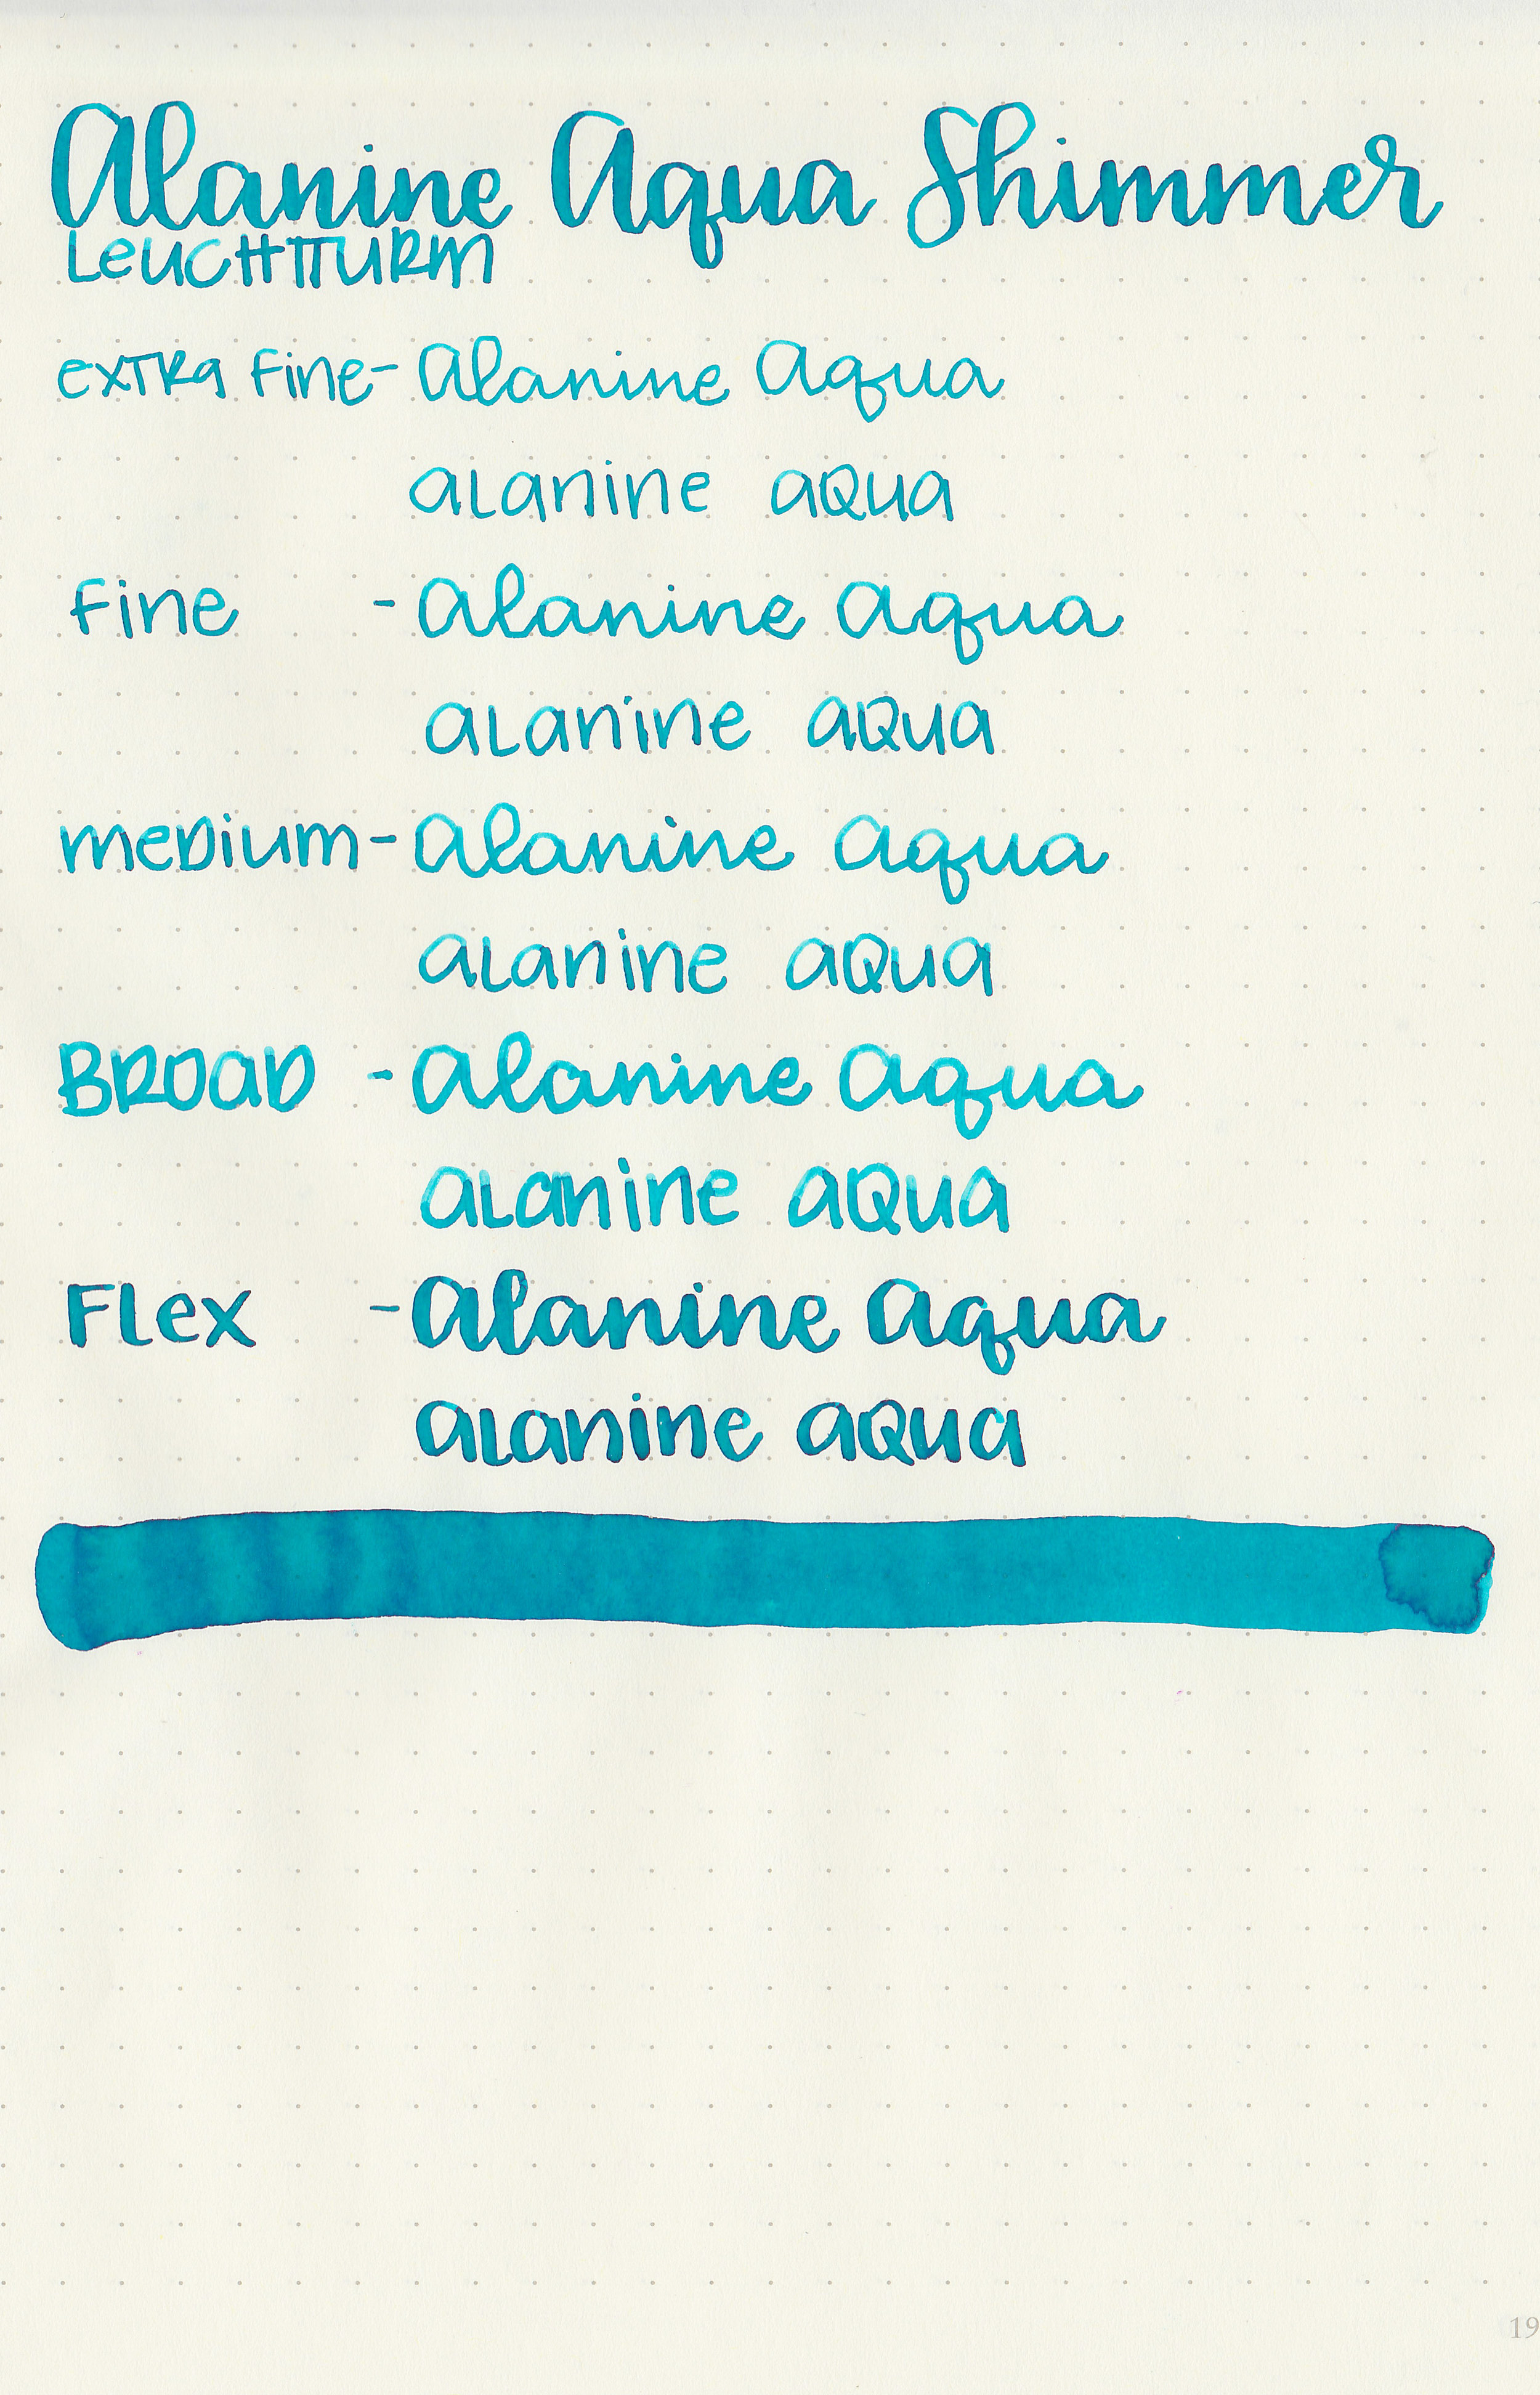 Alanine Aqua Shimmer
LEUCHTTURM
extra fine - Alanine Aqua
alanine aqua
fine - Alanine Aqua
alanine aqua
medium - Alanine Aqua
alanine aqua
BROAD - Alanine Aqua
alanine aqua
Flex - Alanine Aqua
alanine aqua
19